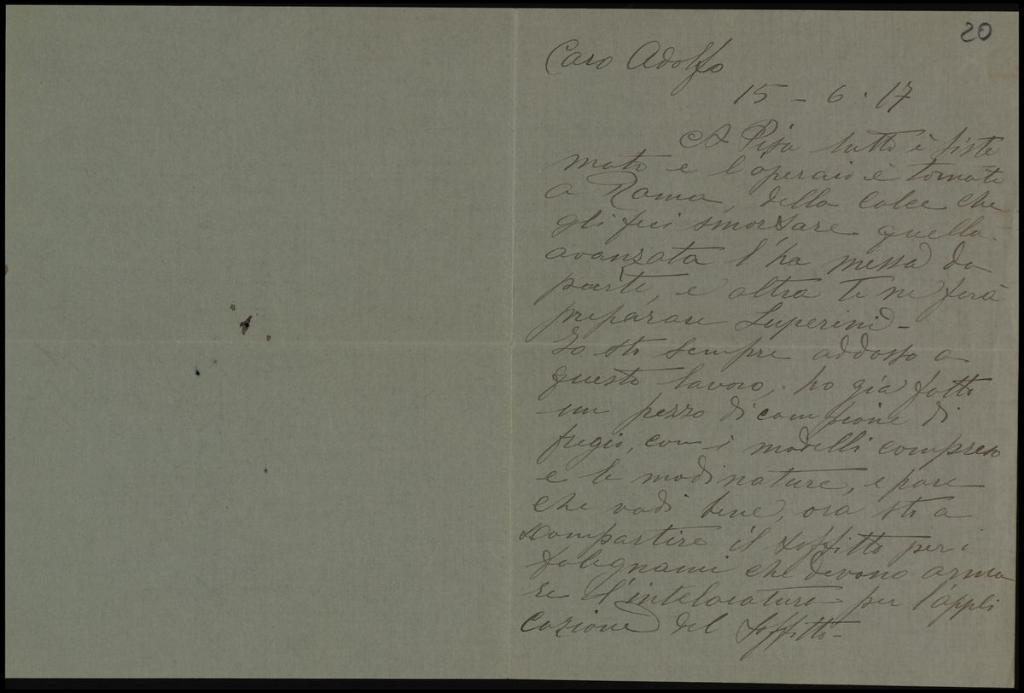 20
Caro Adolfo
15 - 6 - 17
A Pisa tutto è siste
mato e l'operaio è tornato
a Roma, della calce che
gli feci smorzare quella
avanzata l'ha messa da
parte, e altra te ne farà
preparare Luperini -
Io sto sempre addosso a
questo lavoro, ho già fatto
un pezzo di campione di
fregio, con i modelli compreso
e le modinature, e pare
che vadi bene, ora sto a
scompartire il soffitto per i
falegnami che devono arma
re l'intelaiatura per l'appli
cazione del soffitto -